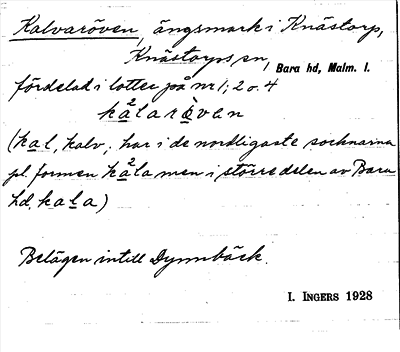 Kalvaröven, ängsmark i Knästorp,
Knästorps sn, Bara hd, Malm. l.
fördelad i lotter på nr 1; 2 o. 4
kalarøven
(kal, kalv; har i de nordligaste socknarna
pl. formen kala men i större delen av Bara
hd. kala)
Belägen intill Dynnbäck.
I. INGERS 1928